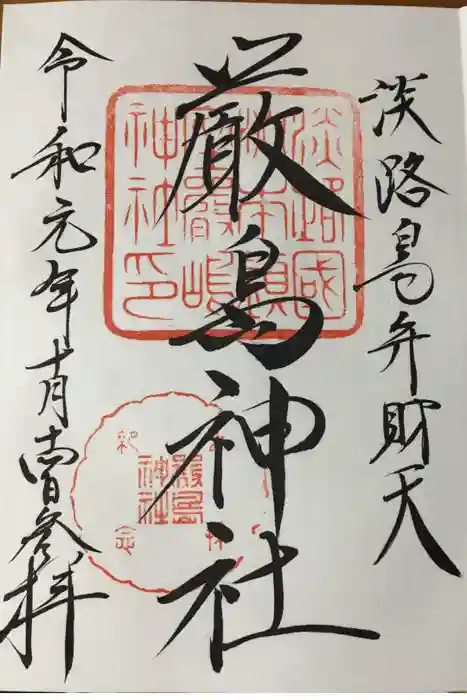 淡路島弁財天
厳島神社
令和元年十月 参拝
淡路國
神社印
厳島
神社
紀念